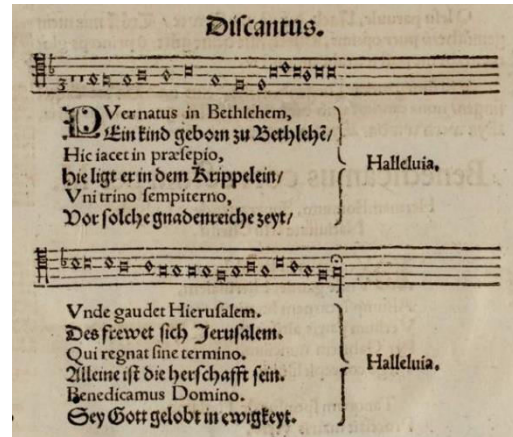 Discantus.
PVer natus in Bethlehem,
Ein kind geborn zu Bethlehē/
Hic iacet in præsepio,
Hie ligt er in dem Krippelein/
Vni trino sempiterno,
Vor solche gnadenreiche zeyt/
Halleluia.
Vnde gaudet Hierusalem.
Des frewet sich Jerusalem.
Qui regnat sine termino.
Alleine ist die herschafft sein.
Benedicamus Domino.
Sey Gott gelobt in ewigkeyt.
Halleluia.